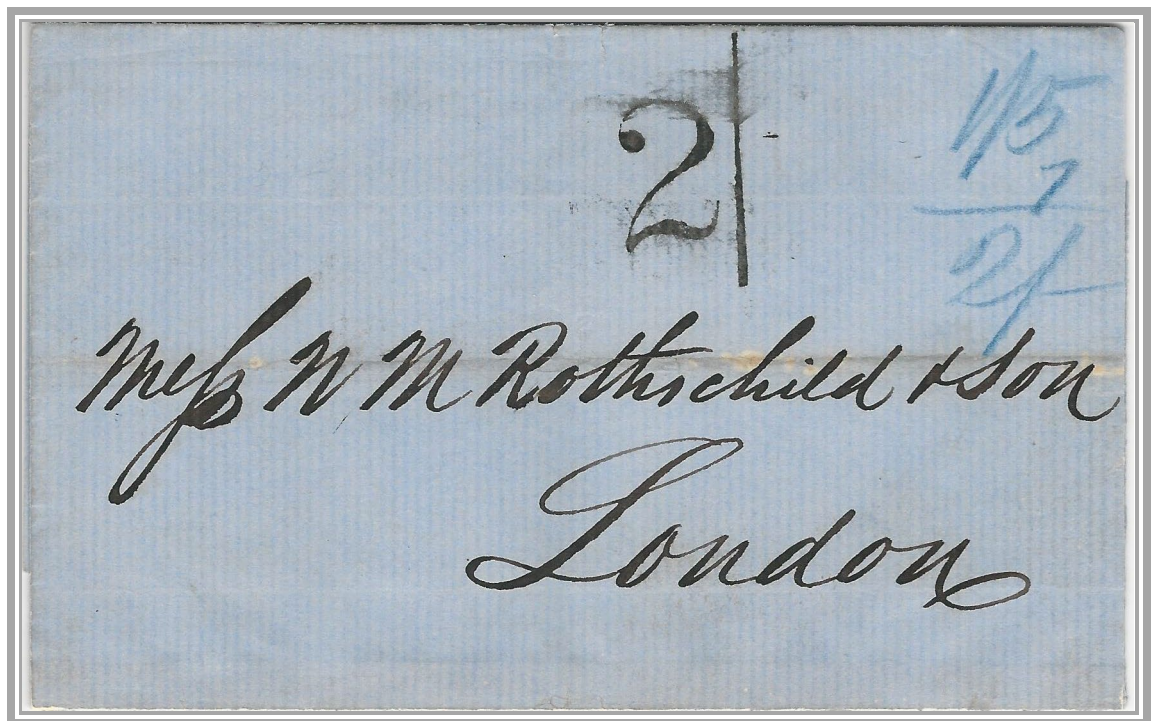 2/
1/5
7
2/-
Mess N M Rothschild & Son
London